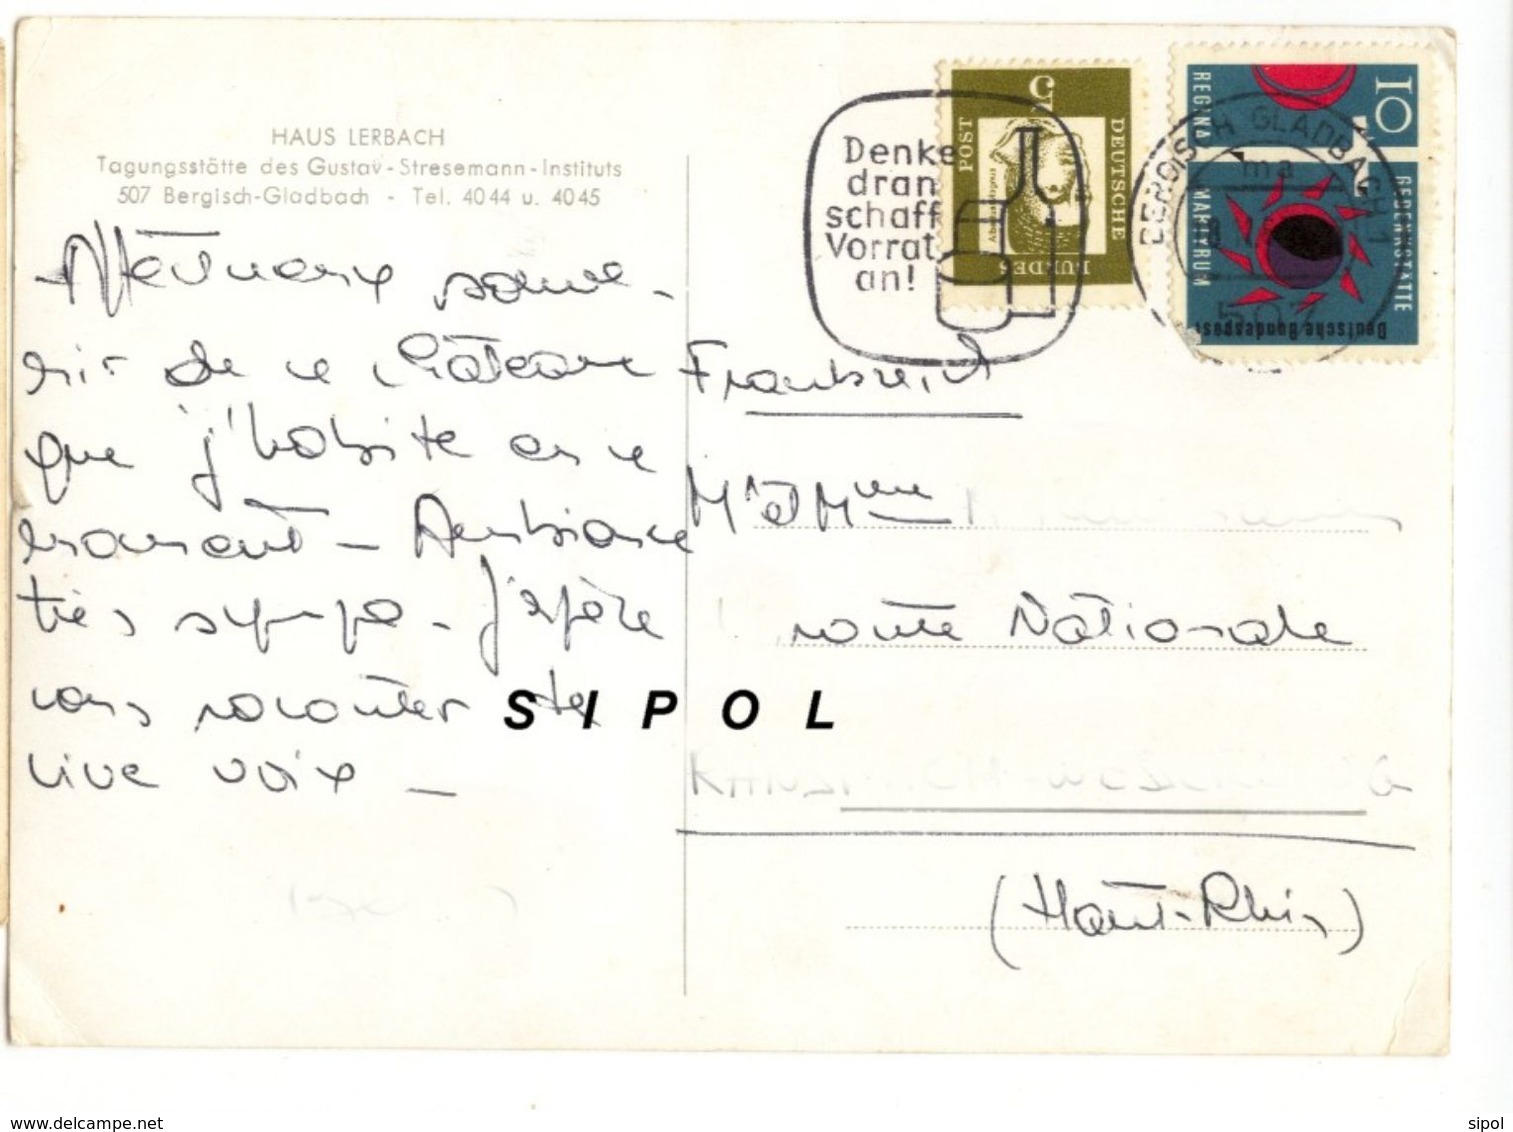 HAUS LERBACH
Tagungsstätte des Gustav-Stresemann-Instituts
507 Bergisch-Gladbach - Tel. 4044 u. 4045
Affectueux souve-
nir de ce château
que j'habite en ce
moment - Ambiance
très sympa - J'espère
vous raconter de
vive voix -
Denke
dran
schaff
Vorrat
an!
5
DEUTSCHE
BUNDES
POST
Albertus Magnus
10
REGINA MARTYRUM
GEDENKSTÄTTE
Deutsche Bundespost
BERGISCH GLADBACH 1
ma
507
Frankreich
Mr et Mme
route Nationale
(Haut-Rhin)
S I P O L
delcampe.net
sipol